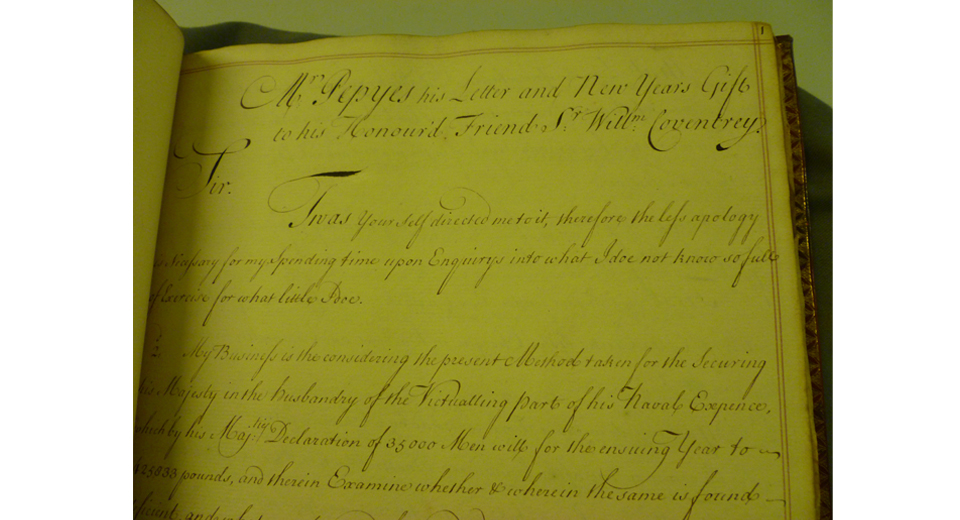 1
Mr. Pepyes his Letter and New Years Gift
to his Honour'd Friend Sr. Willm: Coventrey.
Sir.
Twas Your self directed me to it, therefore the less apology
is Necessary for my spending time upon Enquirys into what I doe not know so full
of Exercise for what little I doe.
2. My Business is the considering the present Method taken for the Securing
his Majesty in the husbandry of the Victualling part of his Naval Expence,
which by his Majtys Declaration of 35000 Men will for the ensuing Year to
pounds, and therein Examine whether & wherein the same is found